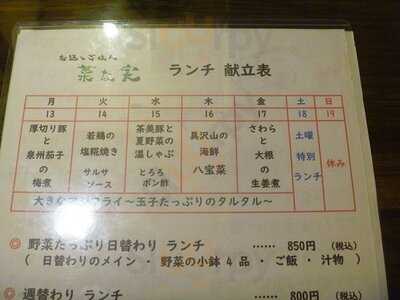 お話とごはん
菜な実
ランチ 献立表
月 火 水 木 金 土 日
13 14 15 16 17 18 19
厚切り豚と泉州茄子の梅煮
若鶏の塩糀焼き サルサソース
茶美豚と夏野菜の温しゃぶ とろろポン酢
具沢山の海鮮八宝菜
さわらと大根の生姜煮
土曜特別ランチ
休み
大きな フライ～玉子たっぷりのタルタル～
◎ 野菜たっぷり日替わり ランチ …… 850円 (税込)
( 日替わりのメイン ・ 野菜の小鉢 4 品 ・ ご飯 ・ 汁物 )
◎ 週替わり ランチ …… 800円 (税込)